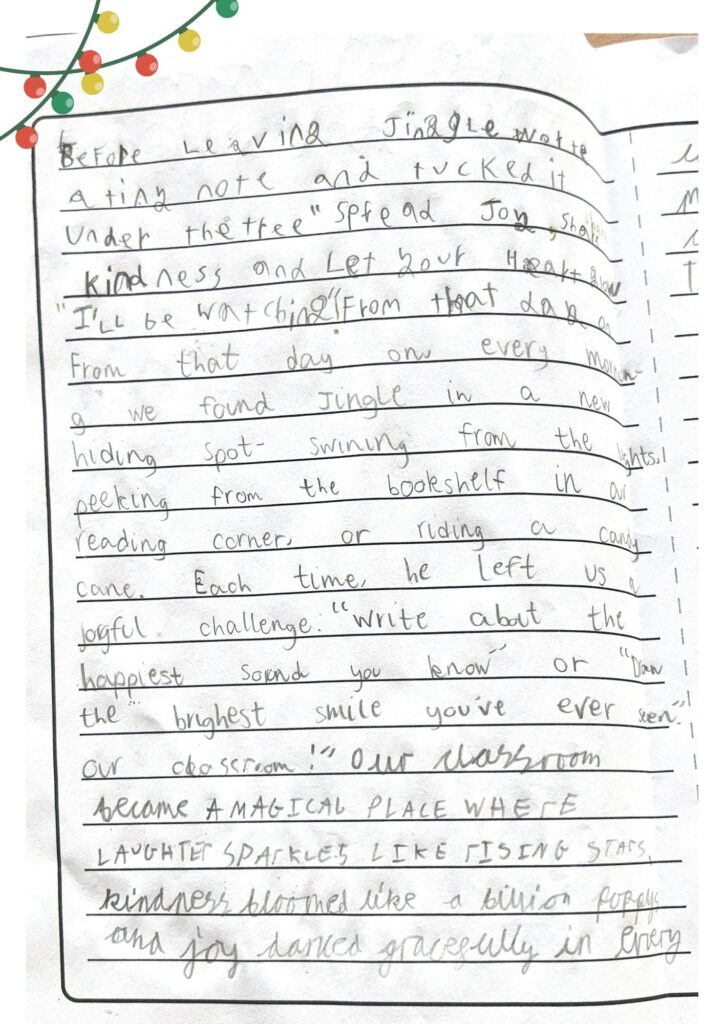 Before Leaving Jinggle wotte
a ting note and tucked it
under the tree " spread Joy, share
kindness and Let your Heart glow
"I'LL be watching" From that day on
From that day on, every mornin-
g we found Jingle in a new
hiding spot- swining from the lights,
peeking from the bookshelf in our
reading corner, or riding a candy
cane. Each time, he left us a
joyful challenge: "write about the
happiest sound you know" or "Draw
the brighest smile you've ever seen."
our classroom!" Our classroom
became A MAGICAL PLACE WHERE
LAUGHTER SPARKLES LIKE RISING STARS,
kindness bloomed like a billion poppys
and joy danced gracefully in every